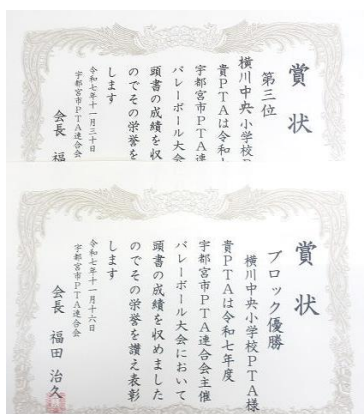 賞状
第三位
横川中央小学校P
貴PTAは令和
宇都宮市PTA連
バレーボール大会
頭書の成績を収
のでその栄誉を
します
令和七年十一月三十日
宇都宮市PTA連合会
会長 福
賞状
ブロック優勝
横川中央小学校PTA様
貴PTAは令和七年度
宇都宮市PTA連合会主催
バレーボール大会において
頭書の成績を収めました
のでその栄誉を讃え表彰
します
令和七年十一月十六日
宇都宮市PTA連合会
会長 福田 治久